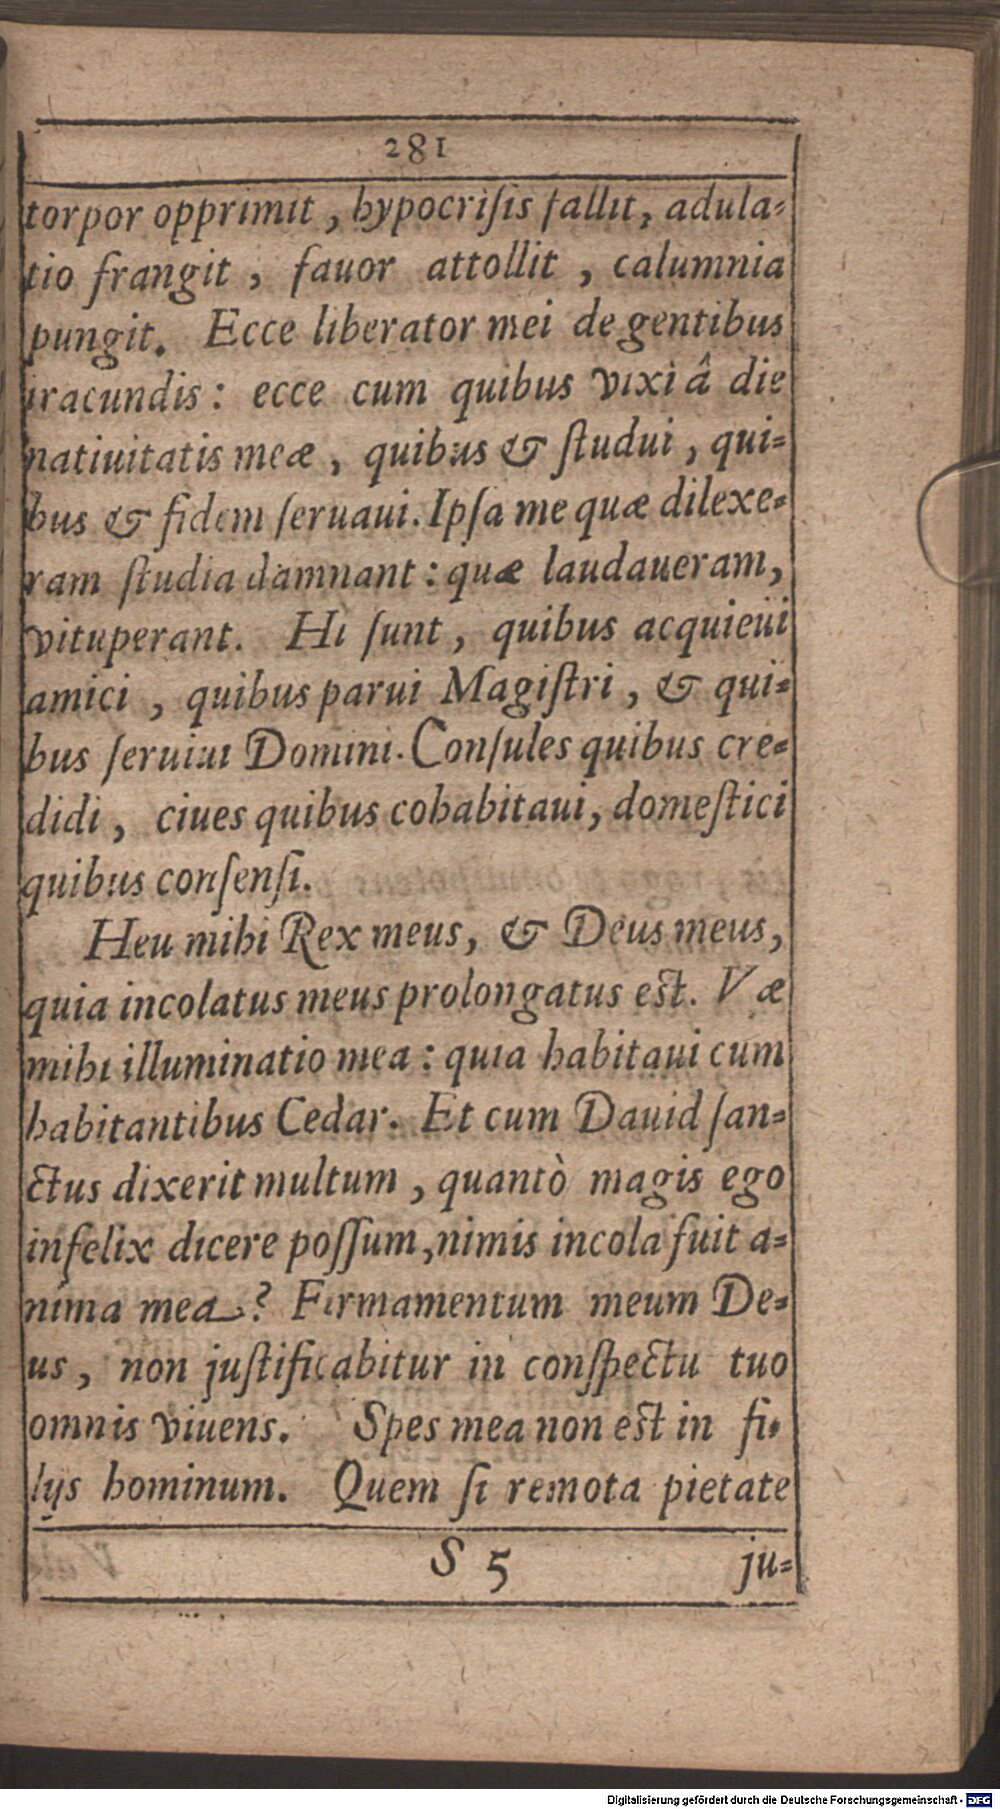 281
torpor opprimit, hypocriſis fallit, adula-
tio frangit, fauor attollit, calumnia
pungit. Ecce liberator mei de gentibus
iracundis: ecce cum quibus vixi â die
natiuitatis meæ, quibus & ſtudui, qui-
bus & fidem ſeruaui. Ipſa me quæ dilexe-
ram ſtudia damnant: quæ laudaueram,
vituperant. Hi ſunt, quibus acquieui
amici, quibus parui Magiſtri, & qui-
bus ſeruiui Domini. Conſules quibus cre-
didi, ciues quibus cohabitaui, domeſtici
quibus conſenſi.
Heu mihi Rex meus, & Deus meus,
quia incolatus meus prolongatus eſt. Væ
mihi illuminatio mea: quia habitaui cum
habitantibus Cedar. Et cum Dauid ſan-
ctus dixerit multum, quantò magis ego
infelix dicere poſſum, nimis incola fuit a-
nima mea? Firmamentum meum De-
us, non juſtificabitur in conſpectu tuo
omnis viuens. Spes mea non eſt in fi-
lijs hominum. Quem ſi remota pietate
S 5 ju-
Digitalisierung gefördert durch die Deutsche Forschungsgemeinschaft - DFG